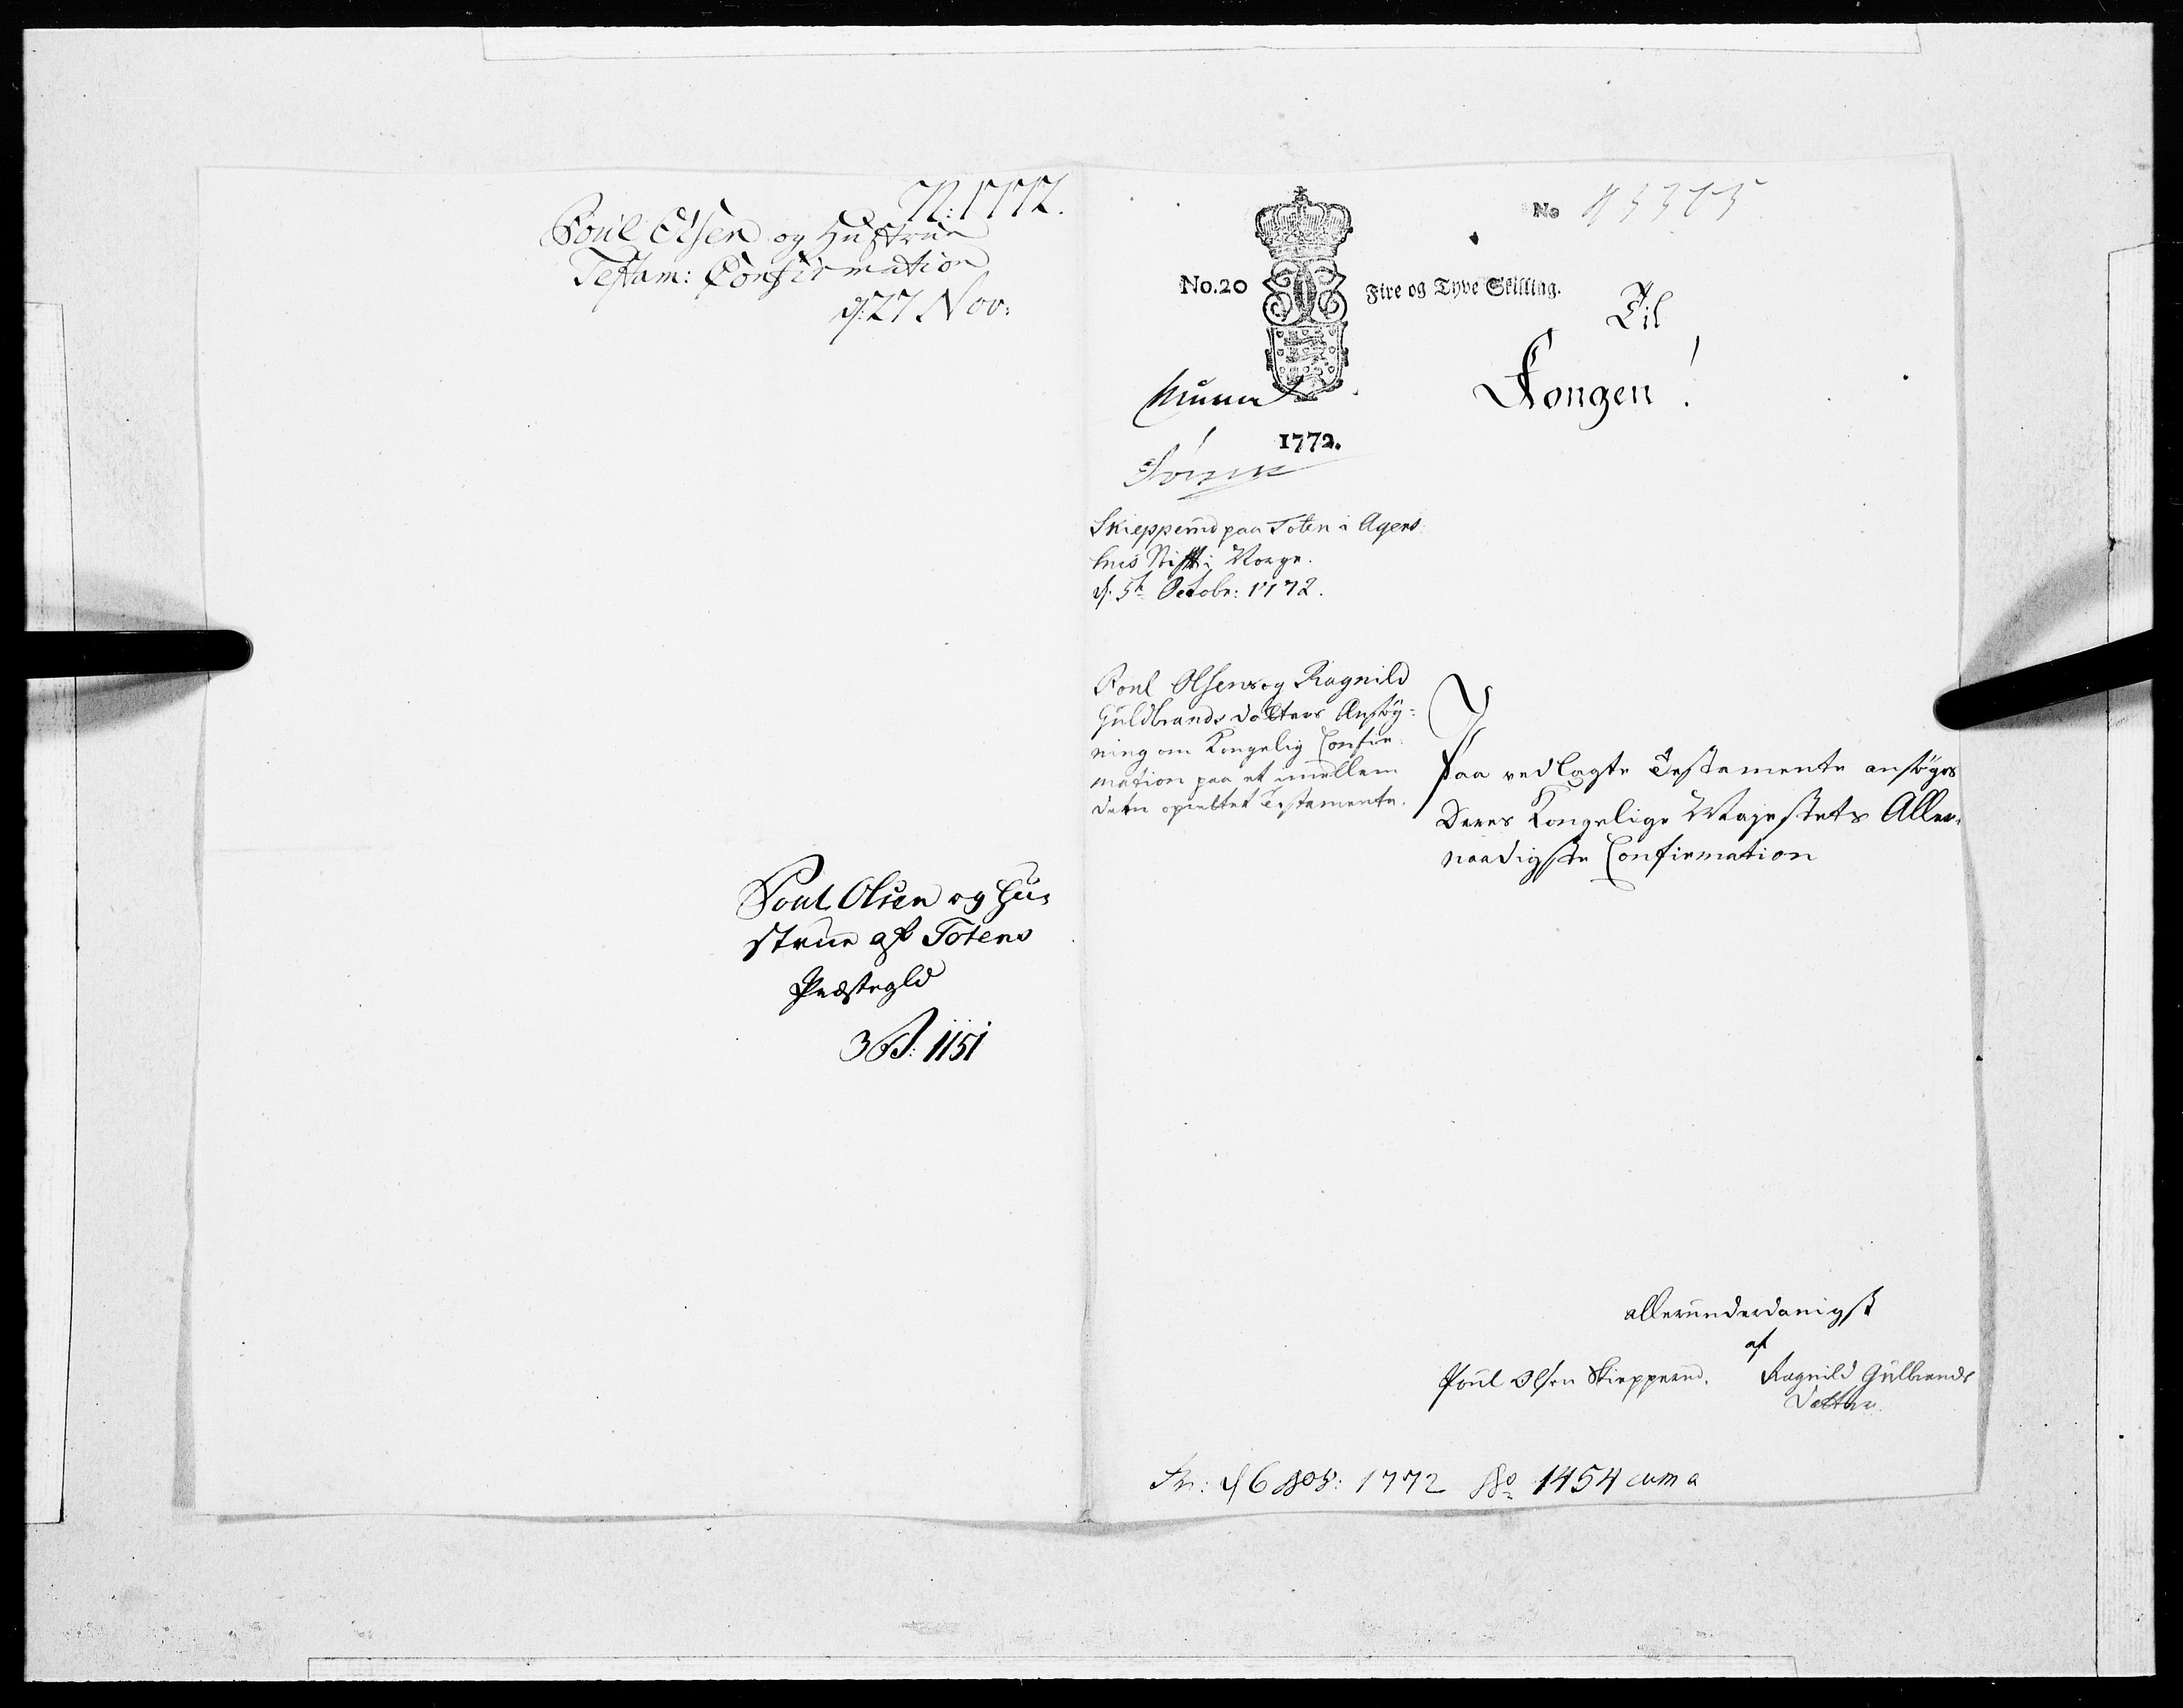 N: 1772.
Poul Olsen og Hustrue
Testam: Confirmation
d: 27 Nov:
Poul Olsen og Hu-
strue af Totens
Præstegld
3 B: 1151
No
No. 20
Fire og Tyve Skilling.
Til
Kongen!
1772.
Skiepperud paa Toten i Agers
huus Stift i Norge.
d. 5t Octobr: 1772.
Poul Olsens og Ragnild
Guldbrands dotters Ansøg-
ning om Kongelig Confir-
mation paa et imellem
dem oprettet Testamente.
Paa vedlagte Testamente ansøges
Deres Kongelige Majestets Aller-
naadigste Confirmation
allerunderdanigst
af
Poul Olsen Skiepperud. Ragnild Gulbrands
Datter.
d 6 Nov: 1772 No 1454 cum a